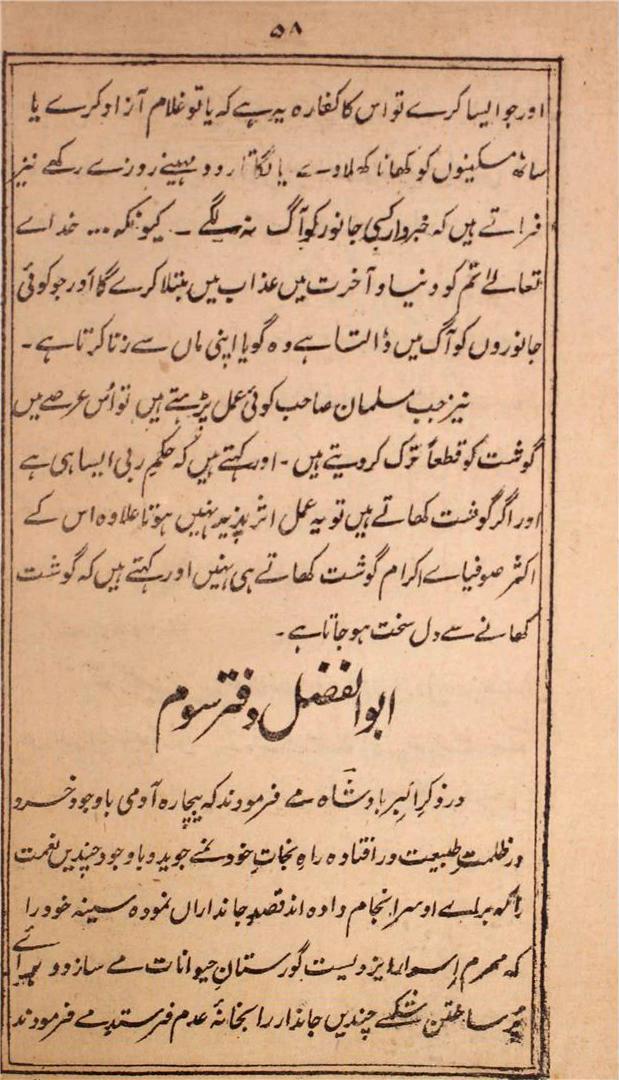 ۵۸
اور جو ایسا کرے تو اس کا کفارہ یہ ہے کہ یا تو غلام آزاد کرے یا
ساٹھ مسکینوں کو کھانا کھلاوے یا لگاتار دو مہینے روزے رکھے نیز
فرماتے ہیں کہ خبردار کسی جانور کو آگ نہ لگے ۔ کیونکہ ... خداے
تعالےٰ تم کو دنیا و آخرت میں عذاب میں مبتلا کرے گا اور جو کوئی
جانوروں کو آگ میں ڈالتا ہے وہ گویا اپنی ماں سے زنا کرتا ہے ۔
نیز جب مسلمان صاحب کوئی عمل پڑہتے ہیں تو اُس عرصے میں
گوشت کو قطعاً ترک کر دیتے ہیں ۔ اور کہتے ہیں کہ حکمِ ربی ایسا ہی ہے
اور اگر گوشت کھاتے ہیں تو یہ عمل اثر پذیر نہیں ہوتا علاوہ اس کے
اکثر صوفیاے اکرام گوشت کھاتے ہی نہیں اور کہتے ہیں کہ گوشت
کھانے سے دل سخت ہو جاتا ہے ۔
ابوالفضل دفتر سوم
در ذکرِ اکبر بادشاہ مے فرمودند کہ بیچارہ آدمی باوجود خرد
در ظلمتِ طبیعت در افتادہ راہِ نجاتِ خود نمے جوید و باوجود چندیں نعمت
را کہ براے او سر انجام دادہ اند قصدِ جانداراں نمودہ سینہ خود را
کہ محرم اسرار ایزدیست گورستانِ حیوانات مے سازد و براے
پُر ساختن شکمے چندیں جاندار را بخانۂ عدم فرستد مے فرمودند